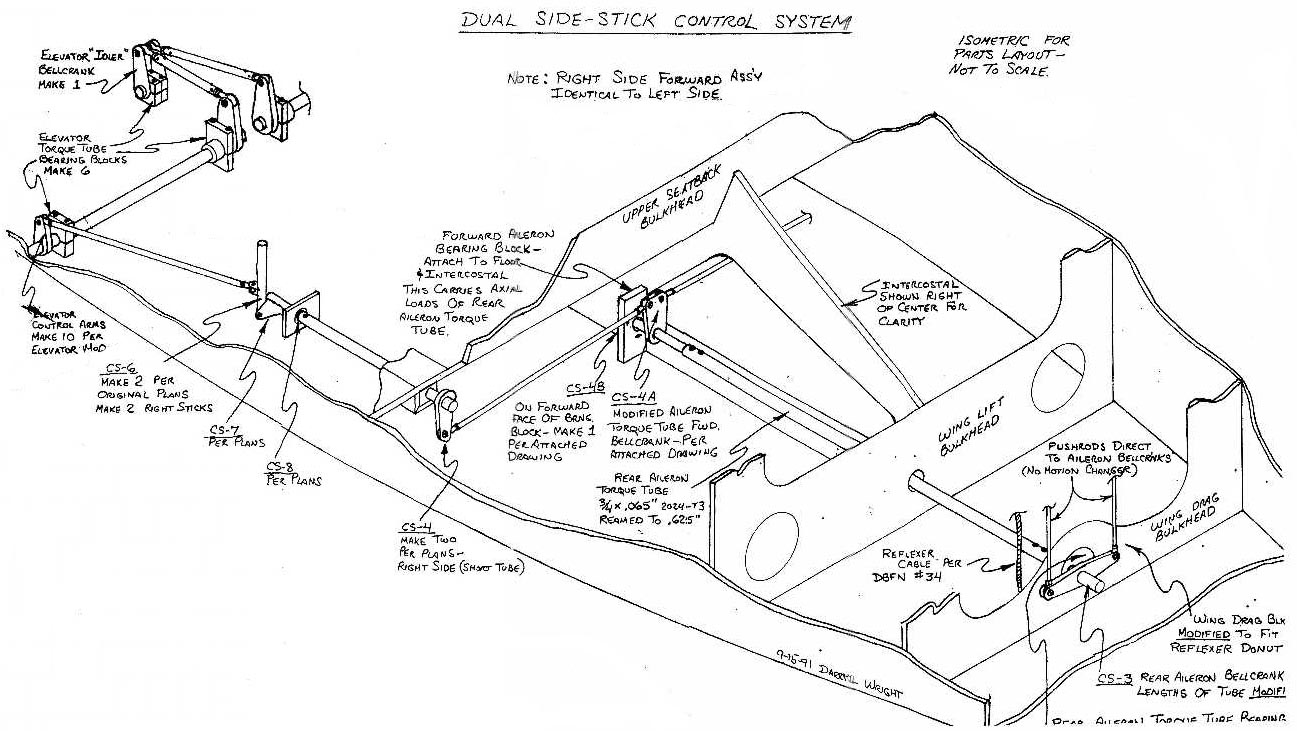 DUAL SIDE-STICK CONTROL SYSTEM
ISOMETRIC FOR
PARTS LAYOUT-
NOT TO SCALE.
NOTE: RIGHT SIDE FORWARD ASS'Y
IDENTICAL TO LEFT SIDE.
ELEVATOR "IDLER"
BELLCRANK
MAKE 1
ELEVATOR
TORQUE TUBE
BEARING BLOCKS
MAKE 6
ELEVATOR
CONTROL ARMS
MAKE 10 PER
ELEVATOR MOD
CS-6
MAKE 2 PER
ORIGINAL PLANS
MAKE 2 RIGHT STICKS
CS-7
PER PLANS
CS-8
PER PLANS
CS-4
MAKE TWO
PER PLANS-
RIGHT SIDE (SHORT TUBE)
FORWARD AILERON
BEARING BLOCK-
ATTACH TO FLOOR
& INTERCOSTAL
THIS CARRIES AXIAL
LOADS OF REAR
AILERON TORQUE
TUBE.
UPPER SEATBACK
BULKHEAD
INTERCOSTAL
SHOWN RIGHT
OF CENTER FOR
CLARITY
CS-4B
ON FORWARD
FACE OF BRNG.
BLOCK-MAKE 1
PER ATTACHED
DRAWING
CS-4A
MODIFIED AILERON
TORQUE TUBE FWD.
BELLCRANK-PER
ATTACHED DRAWING
REAR AILERON
TORQUE TUBE
3/4 x .065" 2024-T3
REAMED TO .625"
WING LIFT
BULKHEAD
PUSHRODS DIRECT
TO AILERON BELLCRANKS
(NO MOTION CHANGER)
WING DRAG
BULKHEAD
REFLEXER
CABLE PER
DBFN #34
WING DRAG BLK
MODIFIED TO FIT
REFLEXER DONUT
CS-3 REAR AILERON BELLCRANK
LENGTHS OF TUBE MODIFI
REAR AILERON TORQUE TUBE
9-15-91 DARRYL WRIGHT